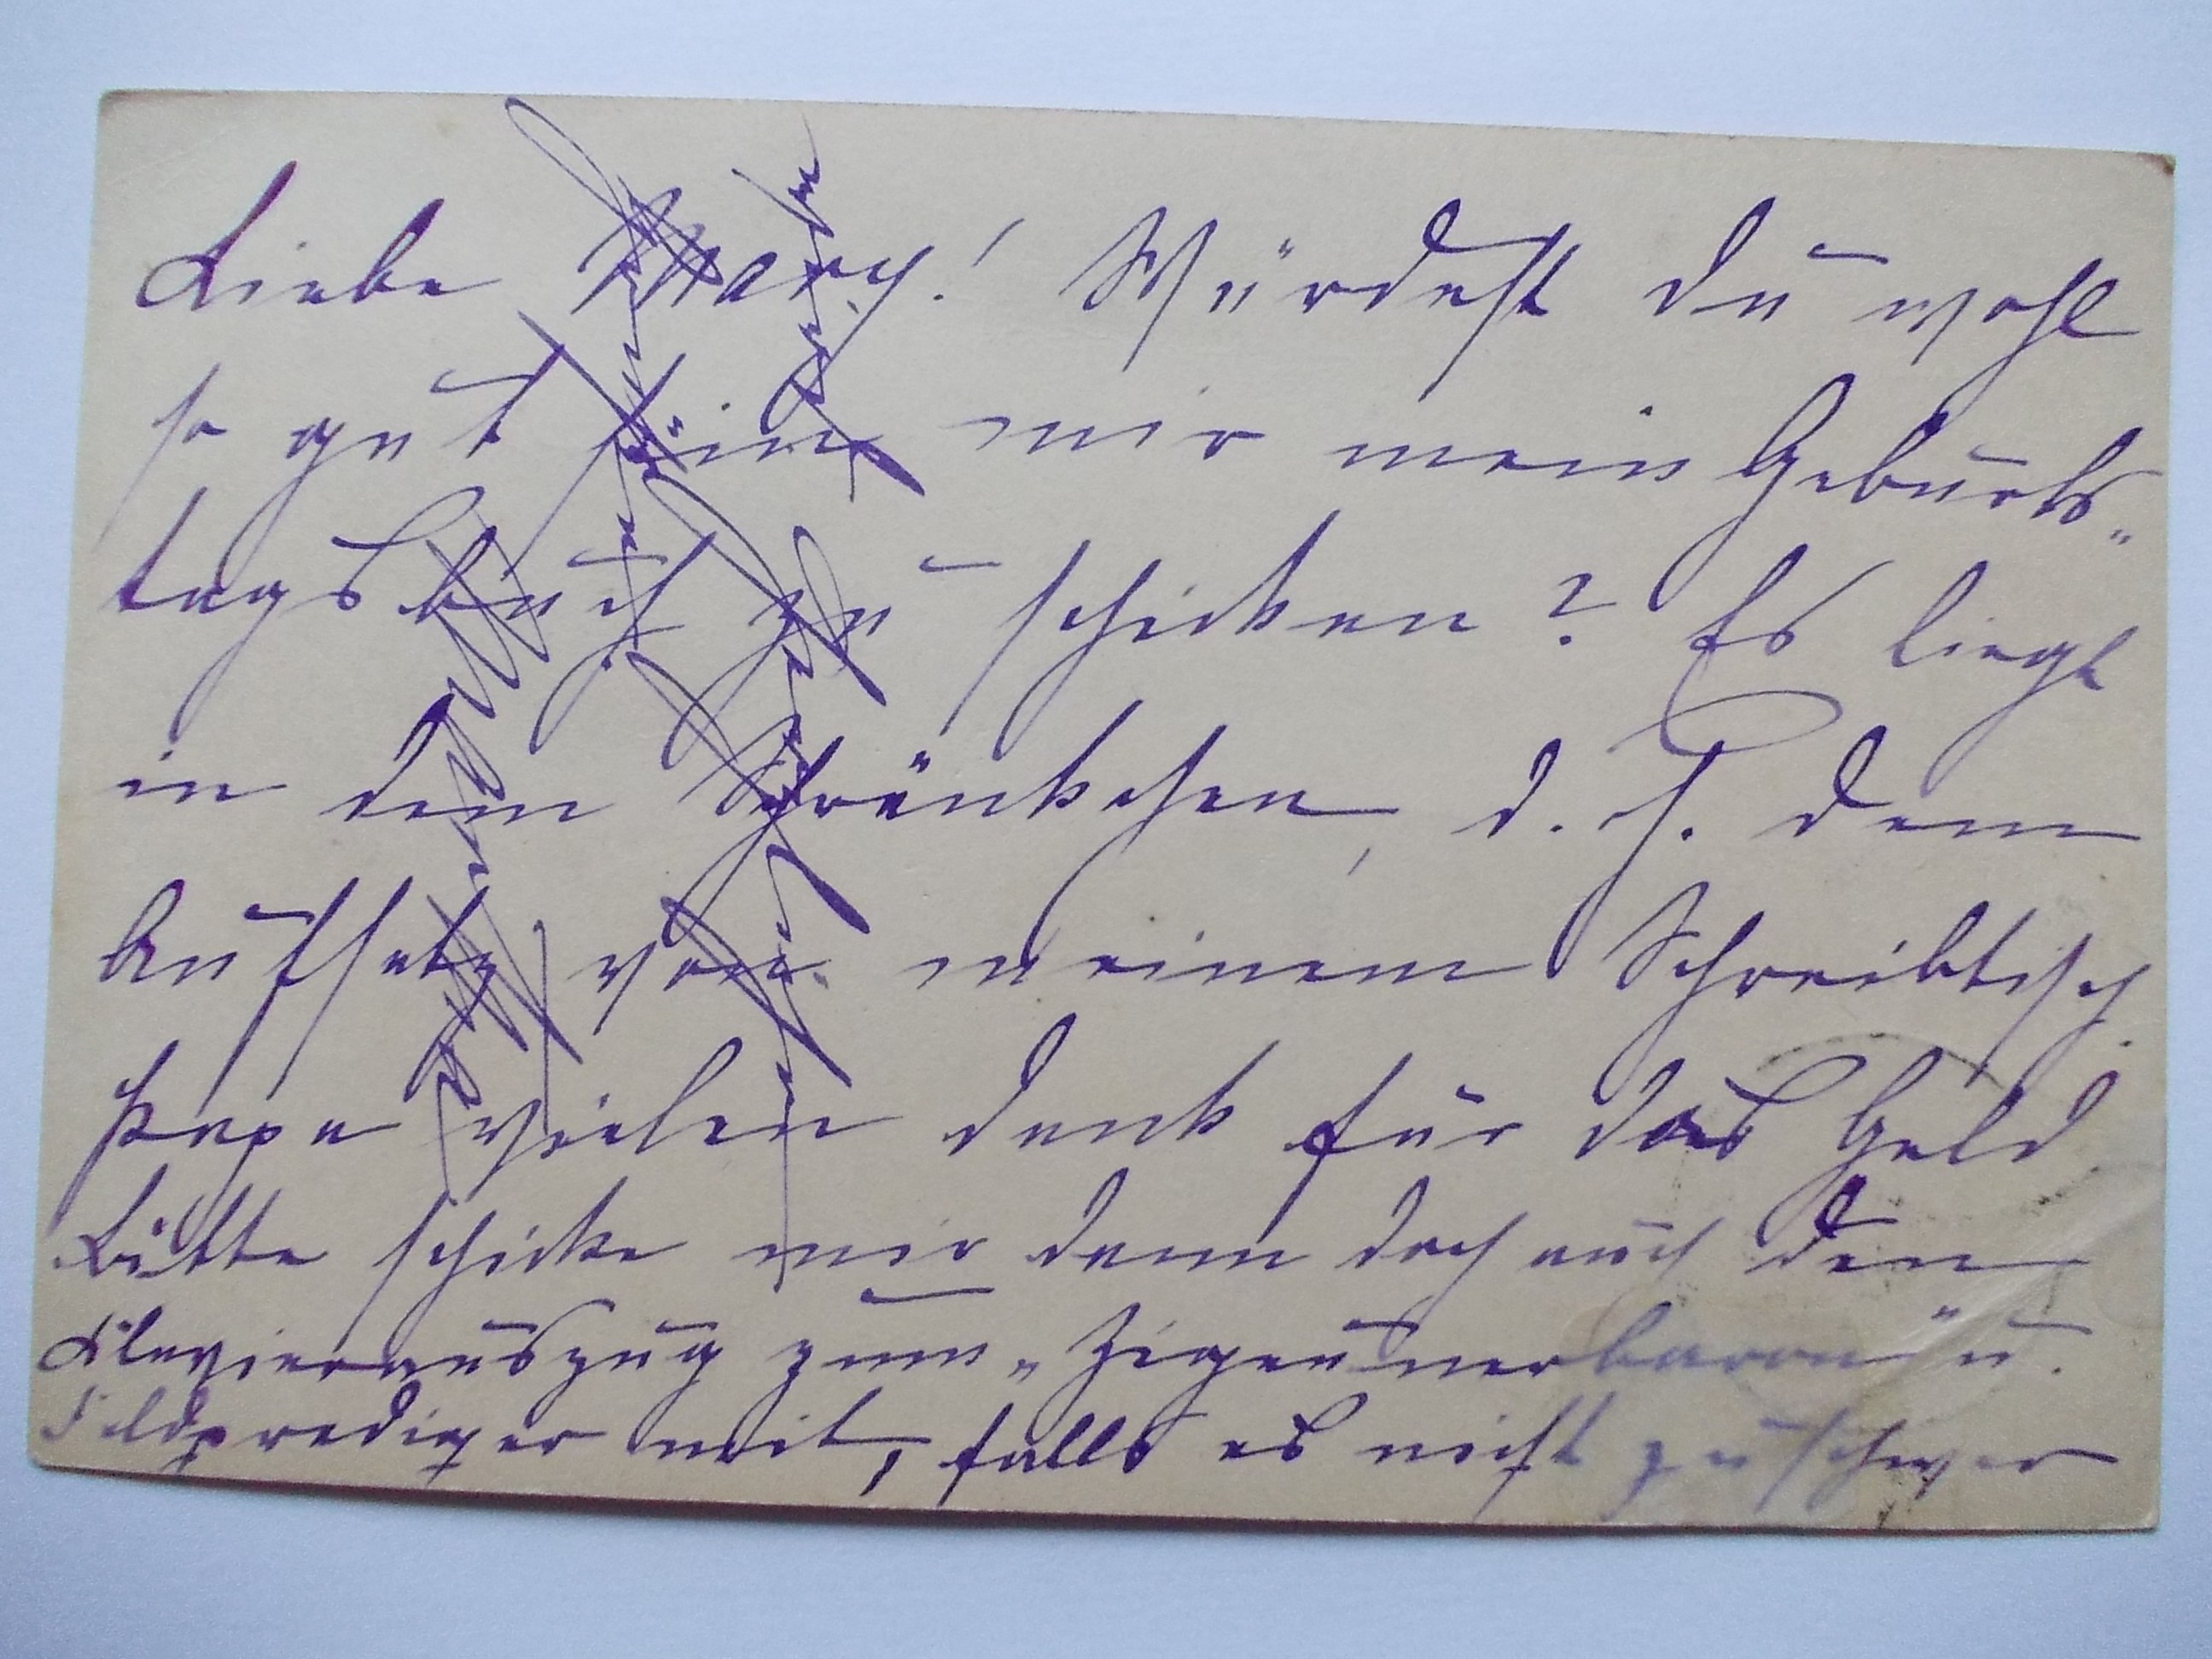 Liebe Mary! Würdest Du wohl
so gut sein mir mein Geburts-
tagsbuch zu schicken? Es liegt
in dem Schränkchen, d. h. dem
Aufsatz von meinem Schreibtisch.
Papa vielen Dank für das Geld
Bitte schicke mir dann doch auch den
Klavierauszug zum „Zigeunerbaron" u.
Feldprediger mit, falls es nicht zu schwer